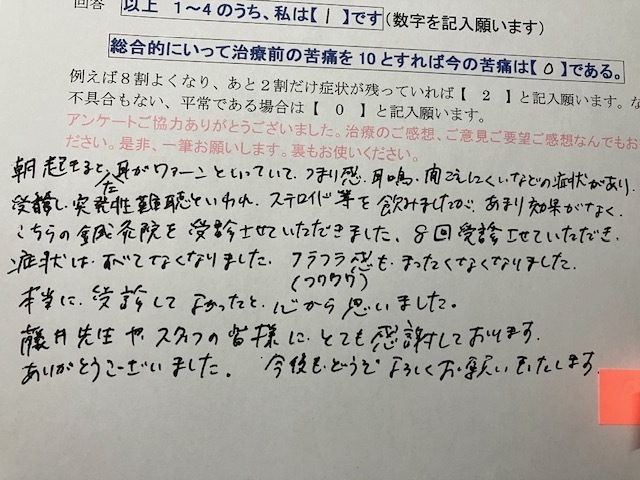 回答 以上 1～4のうち、私は【 1 】です(数字を記入願います)
総合的にいって治療前の苦痛を10とすれば今の苦痛は【 0 】である。
例えば8割よくなり、あと2割だけ症状が残っていれば【 2 】と記入願います。な
不具合もない、平常である場合は【 0 】と記入願います。
アンケートご協力ありがとうございました。治療のご感想、ご意見ご要望ご感想なんでもお
ださい。是非、一筆お願いします。裏もお使いください。
朝起きると、耳がワァーンといっていて、つまり感、耳鳴、聞こえにくいなどの症状があり、
受診した。突発性難聴といわれ、ステロイド等を飲みましたが、あまり効果がなく、
こちらの鍼灸院を受診させていただきました。8回受診させていただき、
症状は、すべてなくなりました。フラフラ感も、まったくなくなりました。
(フワフワ)
本当に、受診してよかったと、心から思いました。
藤井先生や、スタッフの皆様に、とても感謝しております。
ありがとうございました。 今後もどうぞよろしくお願いいたします。